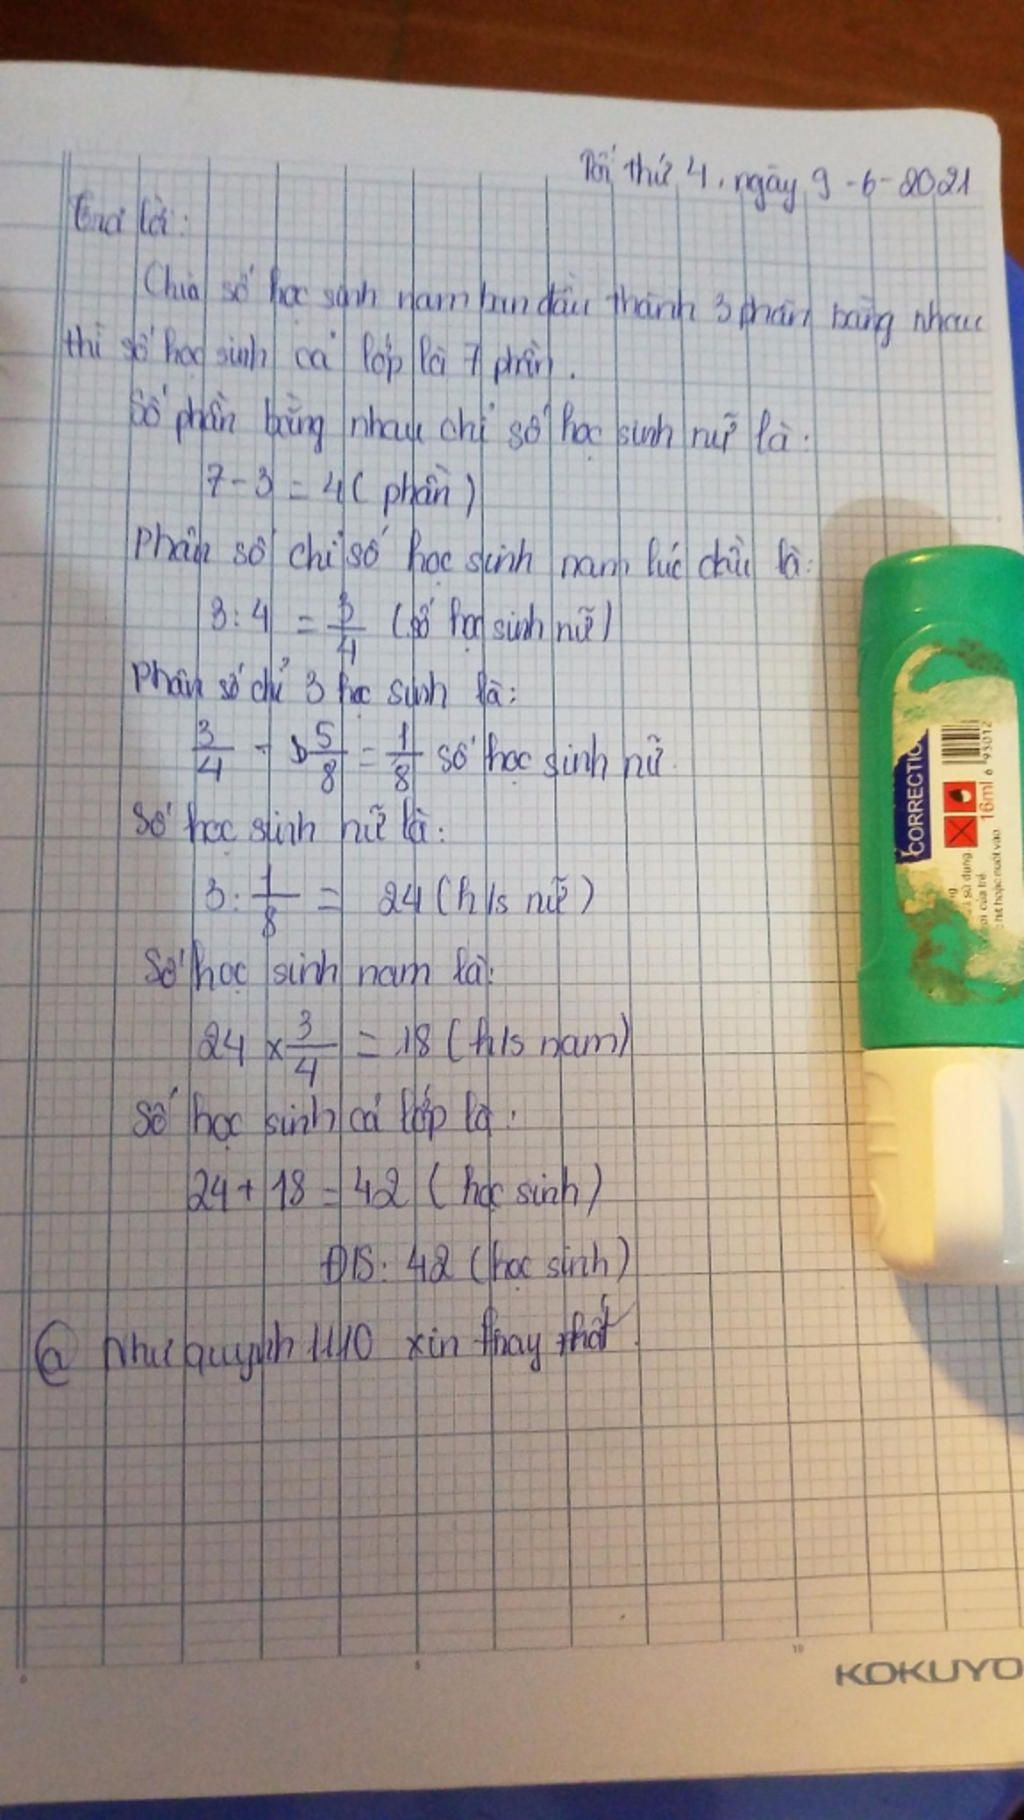 Tối thứ 4, ngày 9-6-2021
Trả lời:
Chia số học sinh nam ban đầu thành 3 phần bằng nhau
thì số học sinh cả lớp là 7 phần.
Số phần bằng nhau chỉ số học sinh nữ là:
7 - 3 = 4 ( phần )
Phân số chỉ số học sinh nam lúc đầu là:
3 : 4 = 3/4 (số học sinh nữ)
Phân số chỉ 3 học sinh là:
3/4 - 5/8 = 1/8 số học sinh nữ.
Số học sinh nữ là:
3 : 1/8 = 24 (h/s nữ)
Số học sinh nam là:
24 × 3/4 = 18 ( h/s nam)
Số học sinh cả lớp là:
24 + 18 = 42 ( học sinh )
Đ/S: 42 (học sinh)
@ Nhuquynh1110 xin hay nhất
CORRECTIO
16ml
6 93012
sử dụng
của trẻ
hít hoặc nuốt vào
0
5
10
KOKUYO